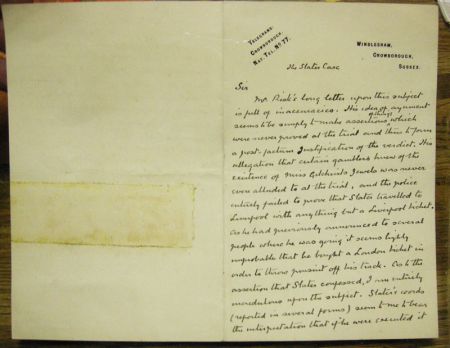 TELEGRAMS:
CROWBOROUGH.
NAT. TEL. Nº 77.
WINDLESHAM,
CROWBOROUGH,
SUSSEX.
The Slater Case
Sir
Mr Risk's long letter upon this subject
is full of inaccuracies. His idea of argument
seems to be simply to make assertions of things which
were never proved at the trial and thus to form
a post-factum justification of the verdict. His
allegation that certain gamblers knew of the
existence of Miss Gilchrist's Jewels was never
even alluded to at the trial, and the police
entirely failed to prove that Slater travelled to
Liverpool with anything but a Liverpool ticket.
As he had previously announced to several
people where he was going it seems highly
improbable that he bought a London ticket in
order to throw pursuit off his track. As to the
assertion that Slater confessed, I am entirely
incredulous upon the subject. Slater's words
(reported in several forms) seem to me to bear
the interpretation that if he were executed it